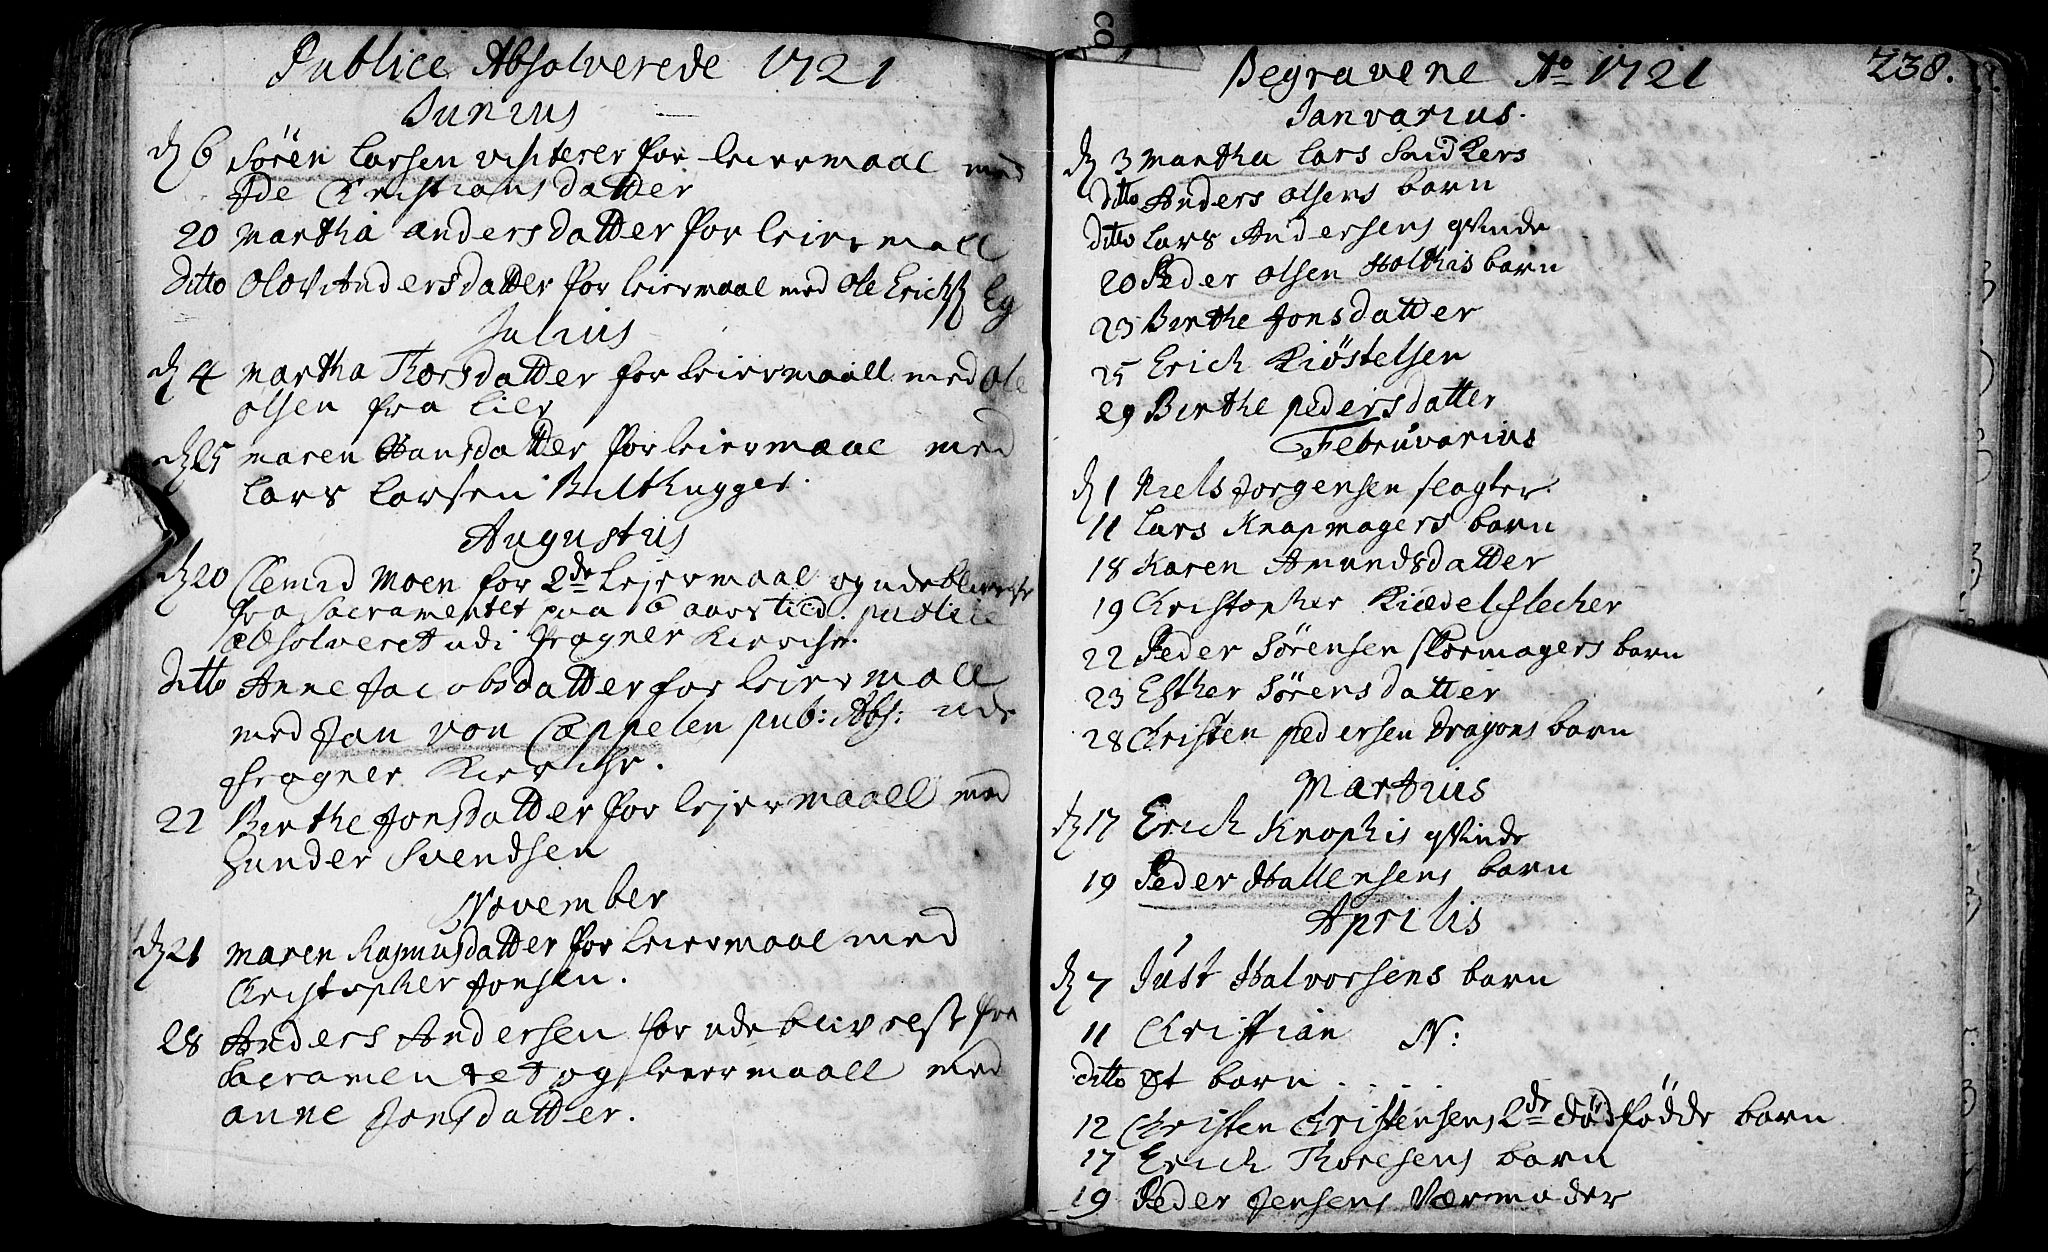 Publice Absolverede 1721
Junius
d 6 Sören Larsen visiterer for leiermaal med
Ade Christiansdatter
20 Martha andersdatter for leiermall
Ditto Olov Andersdatter for leiermaal med Ole Erichs Eg
Julius
d 4 Martha Thorsdatter for leiermaall med Ole
olsen fra Lier
d 25 maren Hansdatter for leiermaal med
Lars Larsen Bilthugger.
Augustus
d 20 Clemed Moen for 2de Lejermaal og udeblivelse
fra sacramentet paa 6 aars tiid. publice
absolveret udi Fragner Kierche.
ditto Anne Jacobsdatter for leiermall
med Jan von Cappelen pub: Abs: ude
Fragner Kierche.
22 Berthe Jonsdatter for lejermaall med
Gunder Svendsen
November
d 21 Maren Rasmusdatter for leiermaal med
Christopher Jonsen.
28 Anders Andersen for udeblivelse fra
Sacramentet og leiermaall med
anne Jonsdatter.
Begravene Ao 1721
238.
Janvarius.
d 3 Martha Lars Snidkers
ditto Anders olsens barn
ditto Lars Andersens qvinde
20 Peder olsen Holthis barn
23 Berthe Jonsdatter
25 Erich Kiöstelsen
29 Berthe pedersdatter
Februvarius
d 1 Niels Jorgensen slagter
11 Lars Knapmagers barn
18 Karen Amundsdatter
19 Christopher Kiædelflecher
22 Peder Sörensen skormagers barn
23 Esther Sörensdatter
28 Christen pedersen Dragons barn
Martius
d 17 Erich Knophis qvinde
19 Peder Hallensens barn
Aprilis
d 7 Just Halvorsens barn
11 Christian N:
ditto Et barn . . . .
12 Christen Christensens 2de dödfödde barn
17 Erich Thoresens barn
19 Peder Jensens Værmoder